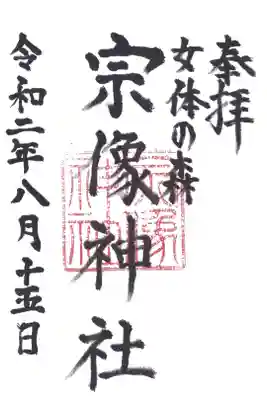 奉拝
女体の森
宗像神社
令和二年八月十五日